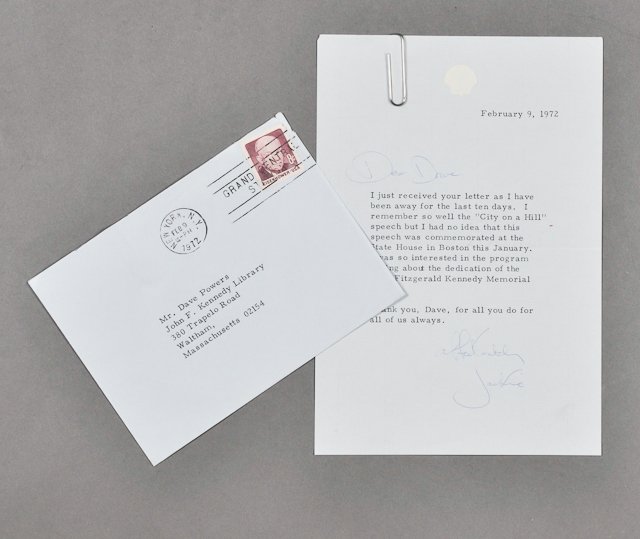 February 9, 1972
Dear Dave
I just received your letter as I have
been away for the last ten days. I
remember so well the "City on a Hill"
speech but I had no idea that this
speech was commemorated at the
State House in Boston this January.
was so interested in the program
about the dedication of the
Fitzgerald Kennedy Memorial
you, Dave, for all you do for
all of us always.
Jackie
GRAND CENTRAL
ST
EISENHOWER USA
NEW YORK, N.Y.
FEB 9
PM
1972
Mr. Dave Powers
John F. Kennedy Library
380 Trapelo Road
Waltham,
Massachusetts 02154